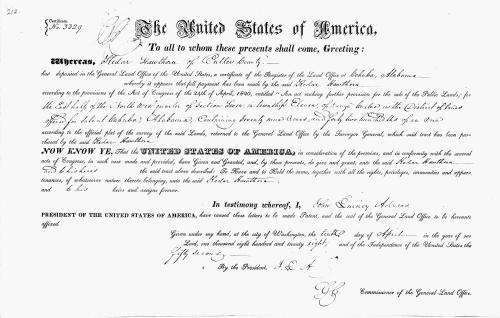 212
Certificate
No. 3229
The United States of America,
To all to whom these presents shall come, Greeting:
Whereas, Kedar Hawthorn of Butler County
has deposited in the General Land Office of the United States, a certificate of the Register of the Land Office at Cahaba, Alabama
whereby it appears that full payment has been made by the said Kedar Hawthorn
according to the provisions of the Act of Congress of the 24th of April, 1820, entitled "An act making further provision for the sale of the Public Lands," for
the East half of the North quarter of Section in Township Eleven of Range in the District of lands
offered for sale at Cahaba, Alabama, Containing Seventy nine Acres, and of an Acre
according to the official plat of the survey of the said Lands, returned to the General Land Office by the Surveyor General, which said tract has been pur-
chased by the said Kedar Hawthorn
NOW KNOW YE, That the UNITED STATES OF AMERICA, in consideration of the premises, and in conformity with the several
acts of Congress, in such case made and provided, have Given and Granted, and, by these presents, do give and grant, unto the said Kedar Hawthorn
and to his heirs the said tract above described: To Have and to Hold the same, together with all the rights, privileges, immunities and appur-
tenances, of whatsoever nature thereto belonging, unto the said Kedar Hawthorn
and to his heirs and assigns forever.
In testimony whereof, I, John Quincy Adams
PRESIDENT OF THE UNITED STATES OF AMERICA, have caused these letters to be made Patent, and the seal of the General Land Office to be hereunto
affixed.
Given under my hand, at the city of Washington, the tenth day of April in the year of our
Lord, one thousand eight hundred and twenty eight, and of the Independence of the United States the
fifty second
By the President, J. Q. A
Commissioner of the General Land Office.